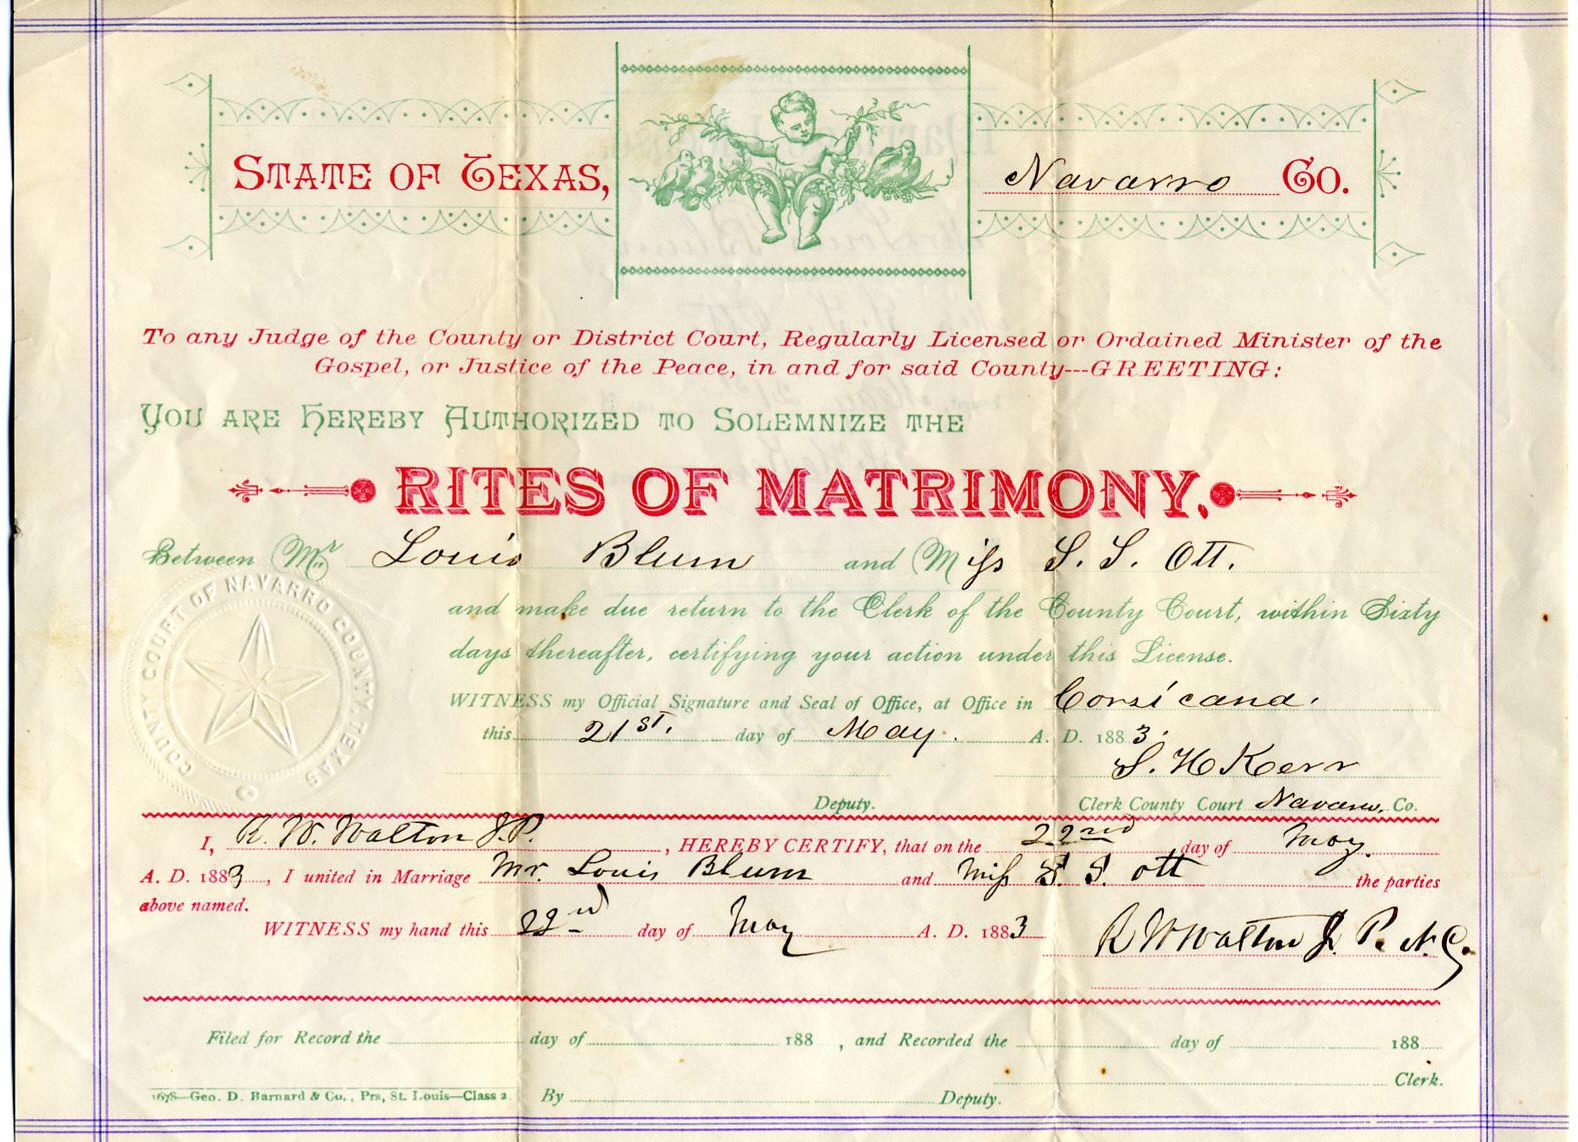 STATE OF TEXAS, Navarro Co.
To any Judge of the County or District Court, Regularly Licensed or Ordained Minister of the
Gospel, or Justice of the Peace, in and for said County---GREETING:
YOU ARE HEREBY AUTHORIZED TO SOLEMNIZE THE
RITES OF MATRIMONY.
Between Mr. Louis Blum and Miss S. S. Ott.
COUNTY COURT OF NAVARRO COUNTY TEXAS
and make due return to the Clerk of the County Court, within Sixty
days thereafter, certifying your action under this License.
WITNESS my Official Signature and Seal of Office, at Office in Corsicana.
this 21st. day of May. A. D. 1883.
S. H Kerr
Deputy. Clerk County Court Navarro. Co.
I, R. W. Walton J.P. , HEREBY CERTIFY, that on the 22nd day of May.
A. D. 1883, I united in Marriage Mr. Louis Blum and Miss S. S. Ott the parties
above named.
WITNESS my hand this 22nd day of May A. D. 1883
R W Walton J. P. N. Co.
Filed for Record the day of 188 , and Recorded the day of 188
Clerk.
1678—Geo. D. Barnard & Co., Prs, St. Louis—Class 2. By Deputy.